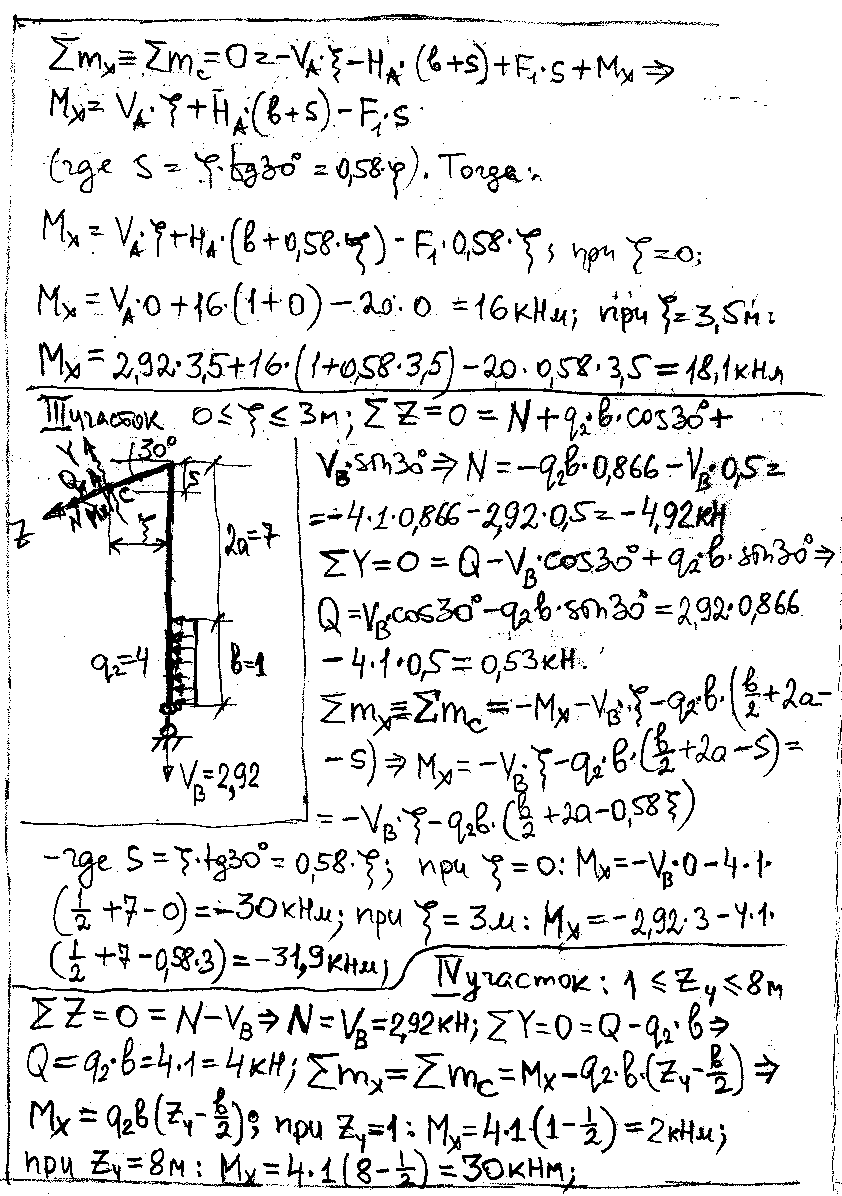 Σmₓ ≡ Σm_c = 0 = -V_A·ξ - H_A·(в+s) + F₁·s + Mₓ ⇒
Mₓ = V_A·ξ + H_A·(в+s) - F₁·s
(где s = ξ·tg30° = 0,58·ξ). Тогда:
Mₓ = V_A·ξ + H_A·(в+0,58·ξ) - F₁·0,58·ξ; при ξ=0;
Mₓ = V_A·0 + 16·(1+0) - 20·0 = 16 кНм; при ξ=3,5м:
Mₓ = 2,92·3,5+16·(1+0,58·3,5) - 20·0,58·3,5 = 18,1кНм
III участок 0 ≤ ξ ≤ 3м; ΣZ=0 = N + q₂·в·cos30° +
V_B·sin30° ⇒ N = -q₂в·0,866 - V_B·0,5 =
= -4·1·0,866 - 2,92·0,5 = -4,92кН
ΣY=0 = Q - V_B·cos30° + q₂·в·sin30° ⇒
Q = V_B·cos30° - q₂в·sin30° = 2,92·0,866
- 4·1·0,5 = 0,53кН.
Σmₓ ≡ Σm_c = -Mₓ - V_B·ξ - q₂·в·(в/2 + 2a -
- s) ⇒ Mₓ = -V_B·ξ - q₂·в·(в/2 + 2a - s) =
= -V_B·ξ - q₂в·(в/2 + 2a - 0,58ξ)
Y
30°
Q
C
s
Z
N
Mₓ
ξ
2a=7
q₂=4
в=1
V_B=2,92
- где s = ξ·tg30° = 0,58·ξ; при ξ=0: Mₓ = -V_B·0 - 4·1·
(1/2 + 7 - 0) = -30кНм; при ξ=3м: Mₓ = -2,92·3 - 4·1·
(1/2 + 7 - 0,58·3) = -31,9кНм;
IV участок: 1 ≤ Z₄ ≤ 8м
ΣZ=0 = N - V_B ⇒ N = V_B = 2,92кН; ΣY=0 = Q - q₂·в ⇒
Q = q₂·в = 4·1 = 4кН; Σmₓ = Σm_c = Mₓ - q₂·в·(Z₄ - в/2) ⇒
Mₓ = q₂в(Z₄ - в/2); при Z₄=1: Mₓ = 4·1·(1 - 1/2) = 2кНм;
при Z₄=8м: Mₓ = 4·1(8 - 1/2) = 30кНм;